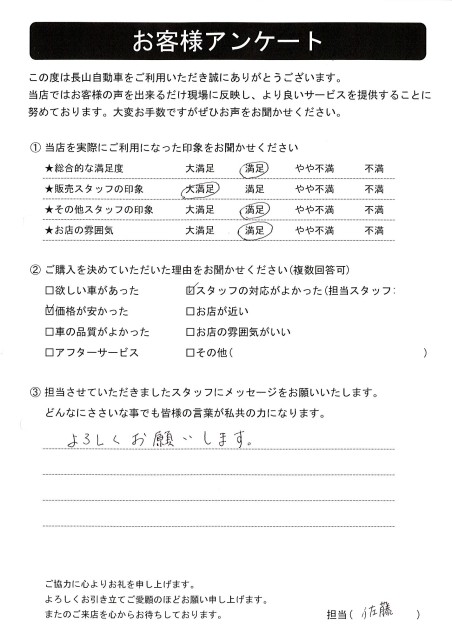 お客様アンケート
この度は長山自動車をご利用いただき誠にありがとうございます。
当店ではお客様の声を出来るだけ現場に反映し、より良いサービスを提供することに
努めております。大変お手数ですがぜひお声をお聞かせください。
① 当店を実際にご利用になった印象をお聞かせください
★総合的な満足度 大満足 満足 やや不満 不満
★販売スタッフの印象 大満足 満足 やや不満 不満
★その他スタッフの印象 大満足 満足 やや不満 不満
★お店の雰囲気 大満足 満足 やや不満 不満
② ご購入を決めていただいた理由をお聞かせください(複数回答可)
□欲しい車があった ☑スタッフの対応がよかった(担当スタッフ:
☑価格が安かった □お店が近い
□車の品質がよかった □お店の雰囲気がいい
□アフターサービス □その他( )
③ 担当させていただきましたスタッフにメッセージをお願いいたします。
どんなにささいな事でも皆様の言葉が私共の力になります。
よろしくお願いします。
ご協力に心よりお礼を申し上げます。
よろしくお引き立てご愛顧のほどお願い申し上げます。
またのご来店を心からお待ちしております。 担当( 佐藤 )